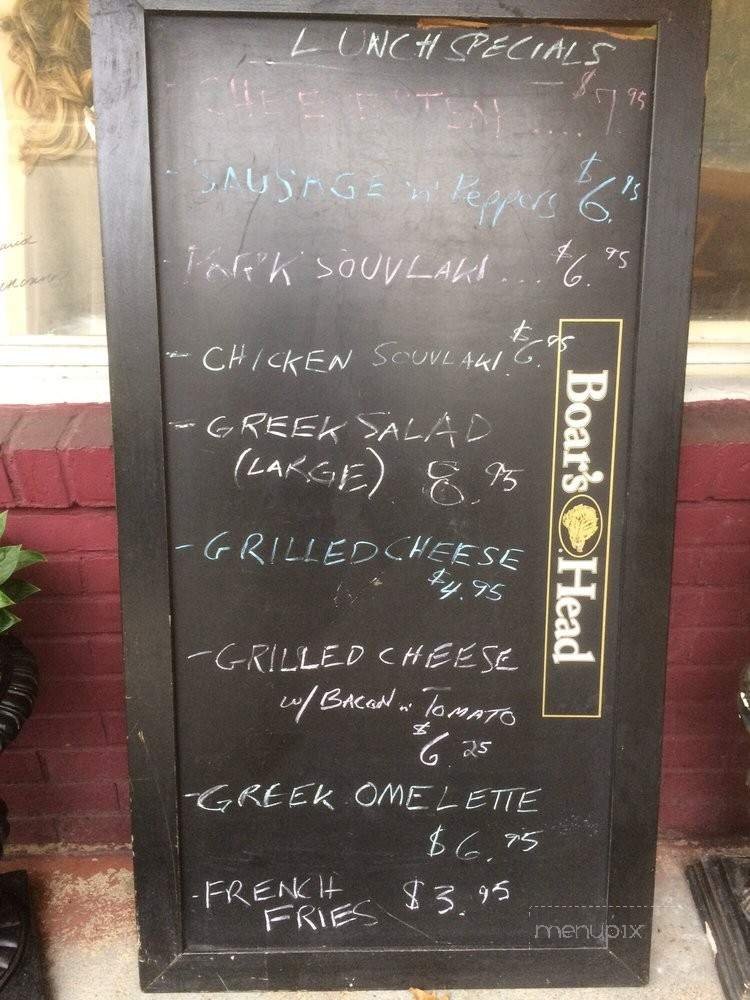 LUNCH SPECIALS
CHEESE STEAK ..... $7.95
- SAUSAGE 'n' Peppers $6.95
- PORK SOUVLAKI ... $6.95
- CHICKEN SOUVLAKI. $6.95
- GREEK SALAD
(LARGE) 8.95
- GRILLED CHEESE
$4.95
- GRILLED CHEESE
w/ BACON n' TOMATO
$6.25
- GREEK OMELETTE
$6.95
- FRENCH $3.95
FRIES
Boar's Head
menupix